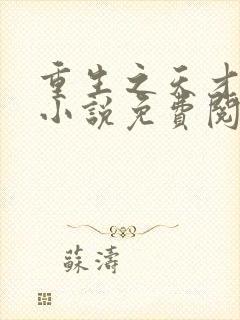 重生之天才
小說免費閱
蘇濤